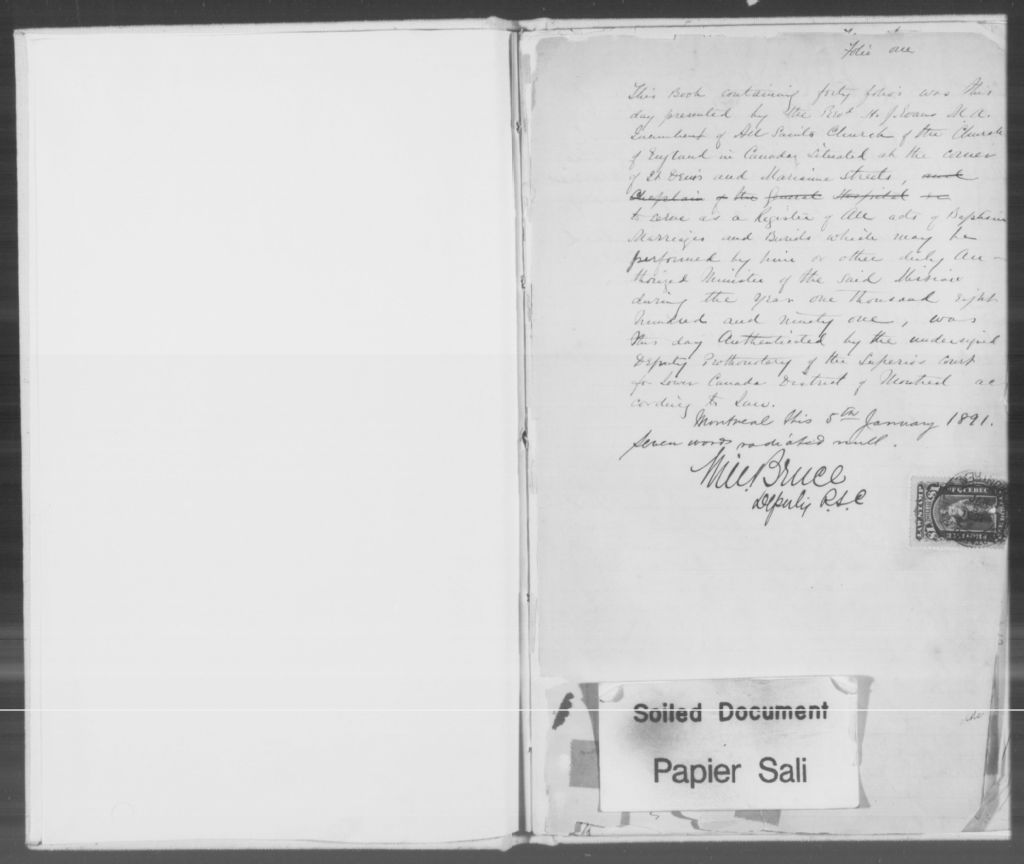 Folio one
This Book containing forty folios was this
day presented by the Revd H. J. Evans M.A.
Incumbent of All Saints Church of the Church
of England in Canada, Situated at the corner
of St Denis and Marianne Streets, and
Chaplain of the General Hospital &c
to serve as a Register of All acts of Baptism
Marriages and Burials which may be
performed by him or other duly Au-
thorized Minister of the said Mission
during the Year one thousand eight
hundred and ninety one, was
this day Authenticated by the undersigned
Deputy Prothonotary of the Superior Court
for Lower Canada District of Montreal ac
cording to Law.
Montreal this 5th January 1891.
Seven words radiated null.
Bruce
Deputy P.S.C
QUEBEC
LAW STAMP
Soiled Document
Papier Sali